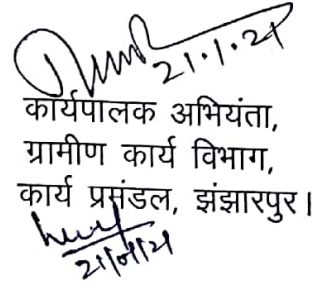 21.1.21
कार्यपालक अभियंता,
ग्रामीण कार्य विभाग,
कार्य प्रमंडल, झंझारपुर।
21/1/21